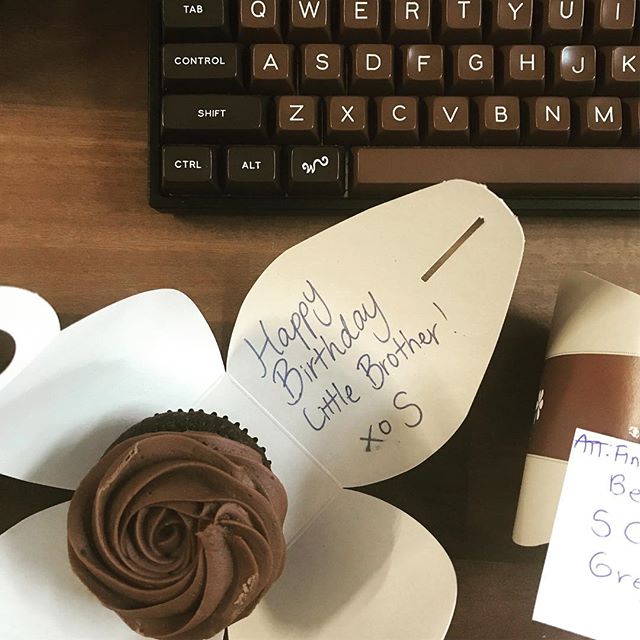 TAB Q W E R T Y U I
CONTROL A S D F G H J K
SHIFT Z X C V B N M
CTRL ALT
Happy
Birthday
Little Brother!
xo S
ATT: Fin
Be
5 C
Gre